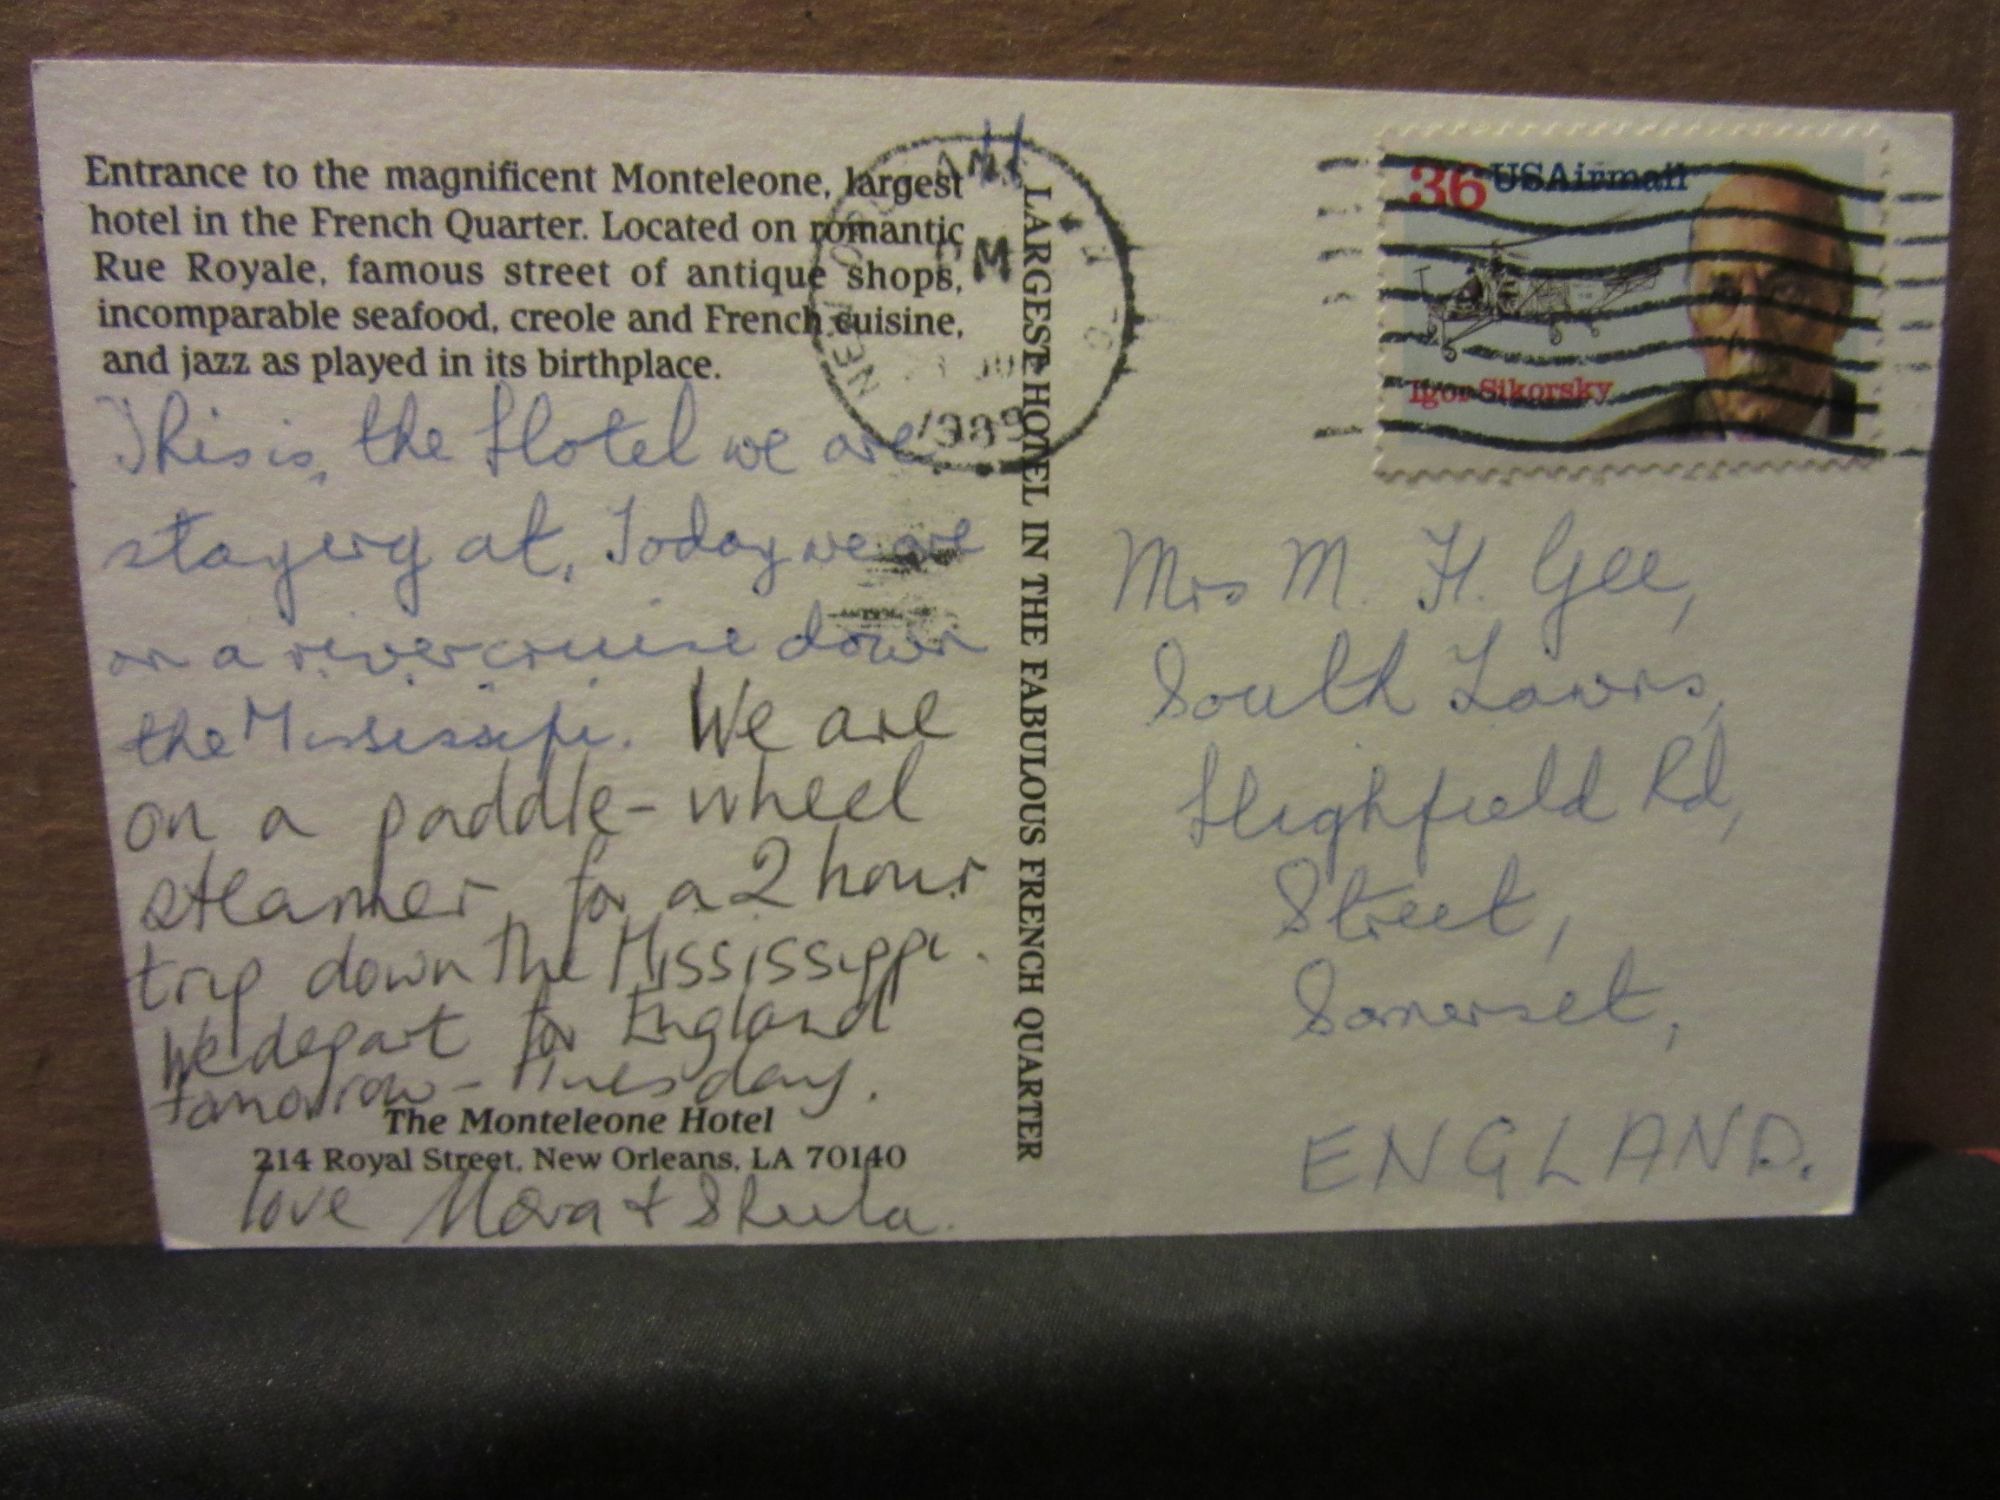 Entrance to the magnificent Monteleone, largest
hotel in the French Quarter. Located on romantic
Rue Royale, famous street of antique shops,
incomparable seafood, creole and French cuisine,
and jazz as played in its birthplace.
This is, the Hotel we are
staying at. Today we are
on a river cruise down
the Mississipi. We are
on a paddle-wheel
steamer for a 2 hour
trip down the Mississippi.
We depart for England
tomorrow - Tuesday.
The Monteleone Hotel
214 Royal Street, New Orleans, LA 70140
love & Sheila.
LARGEST HOTEL IN THE FABULOUS FRENCH QUARTER
NEW ORLEANS
PM
198
36 USAirmail
Igor Sikorsky
Mrs M. H. Gee,
South Lawns,
Highfield Rd,
Street,
Somerset,
ENGLAND.